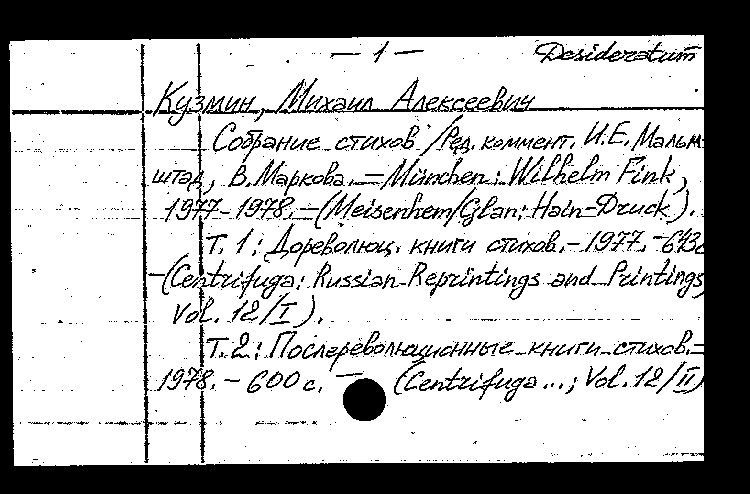 — 1 — Desideratum
Кузмин, Михаил Алексеевич
Собрание стихов / Ред. коммент. И.Е. Мальм-
штад, В. Маркова. — München: Wilhelm Fink,
1977-1978. — (Meisenhem/Glan: Hain-Druck).
Т. 1: Дореволюц. книги стихов. – 1977. – 693с
– (Centrifuga: Russian Reprintings and Printings,
Vol. 12/I).
Т. 2: Послереволюционные книги стихов. –
1978. – 600 с. — (Centrifuga...; Vol. 12/II)